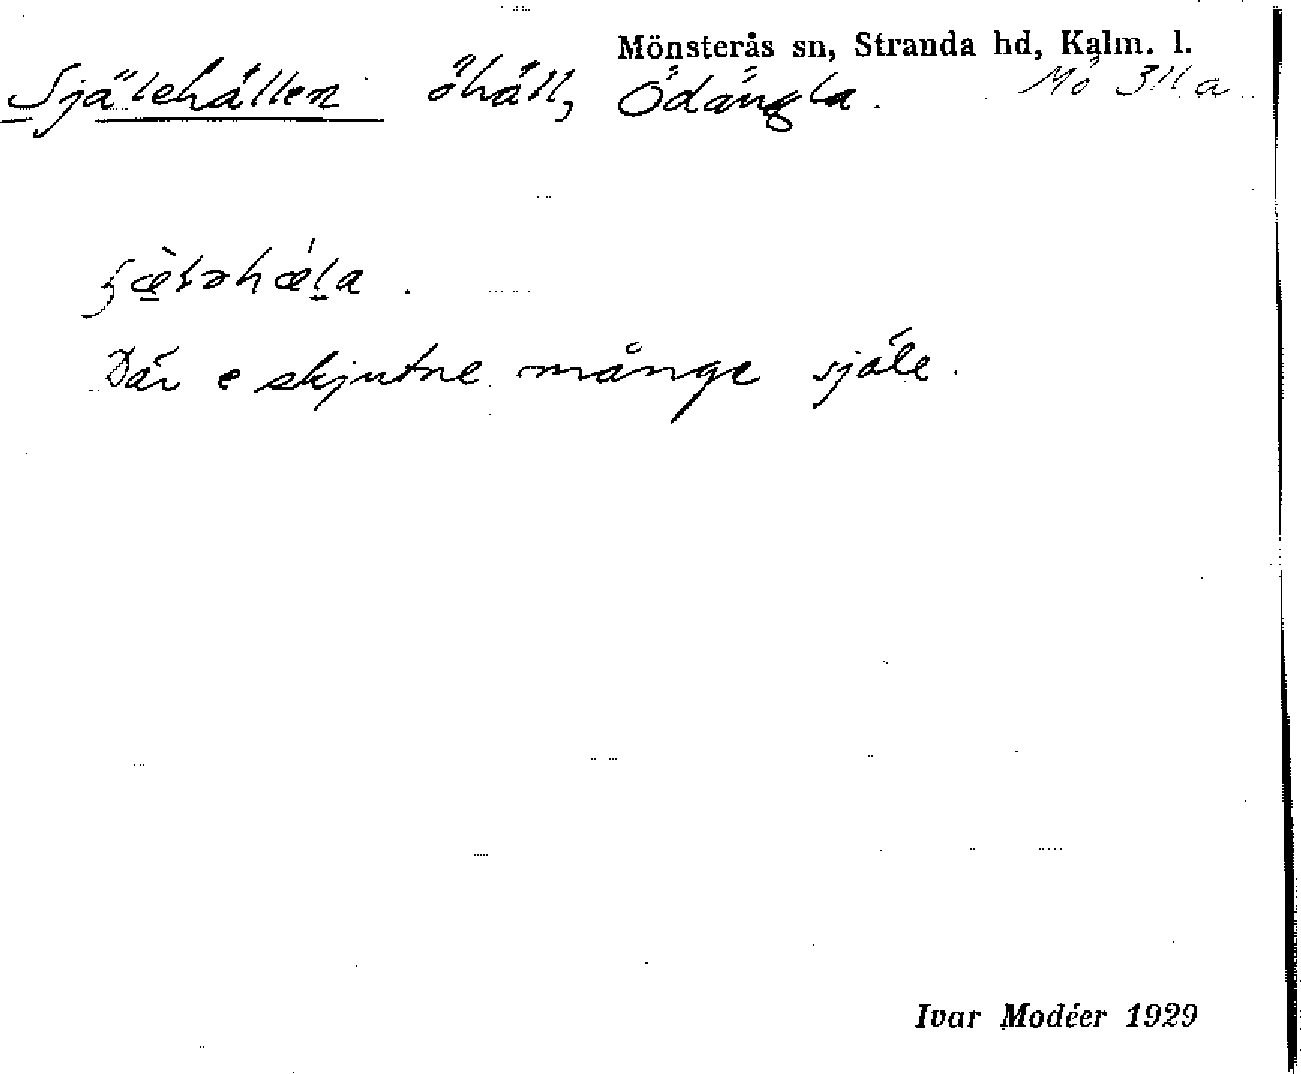 Mönsterås sn, Stranda hd, Kalm. l.
Själehällen öhäll, Ödängla. Mö 311a
Där e skjutne många själe.
Ivar Modéer 1929